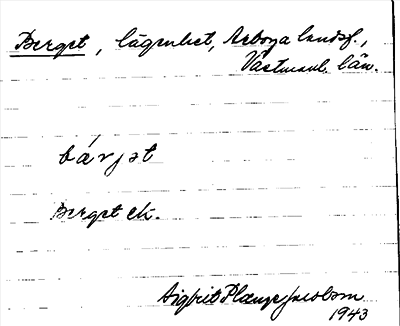 Berget, lägenhet, Arboga landsf.,
Västmanl. län.
bárjət
Berget ek.
Sigfrid Jacobson
1943